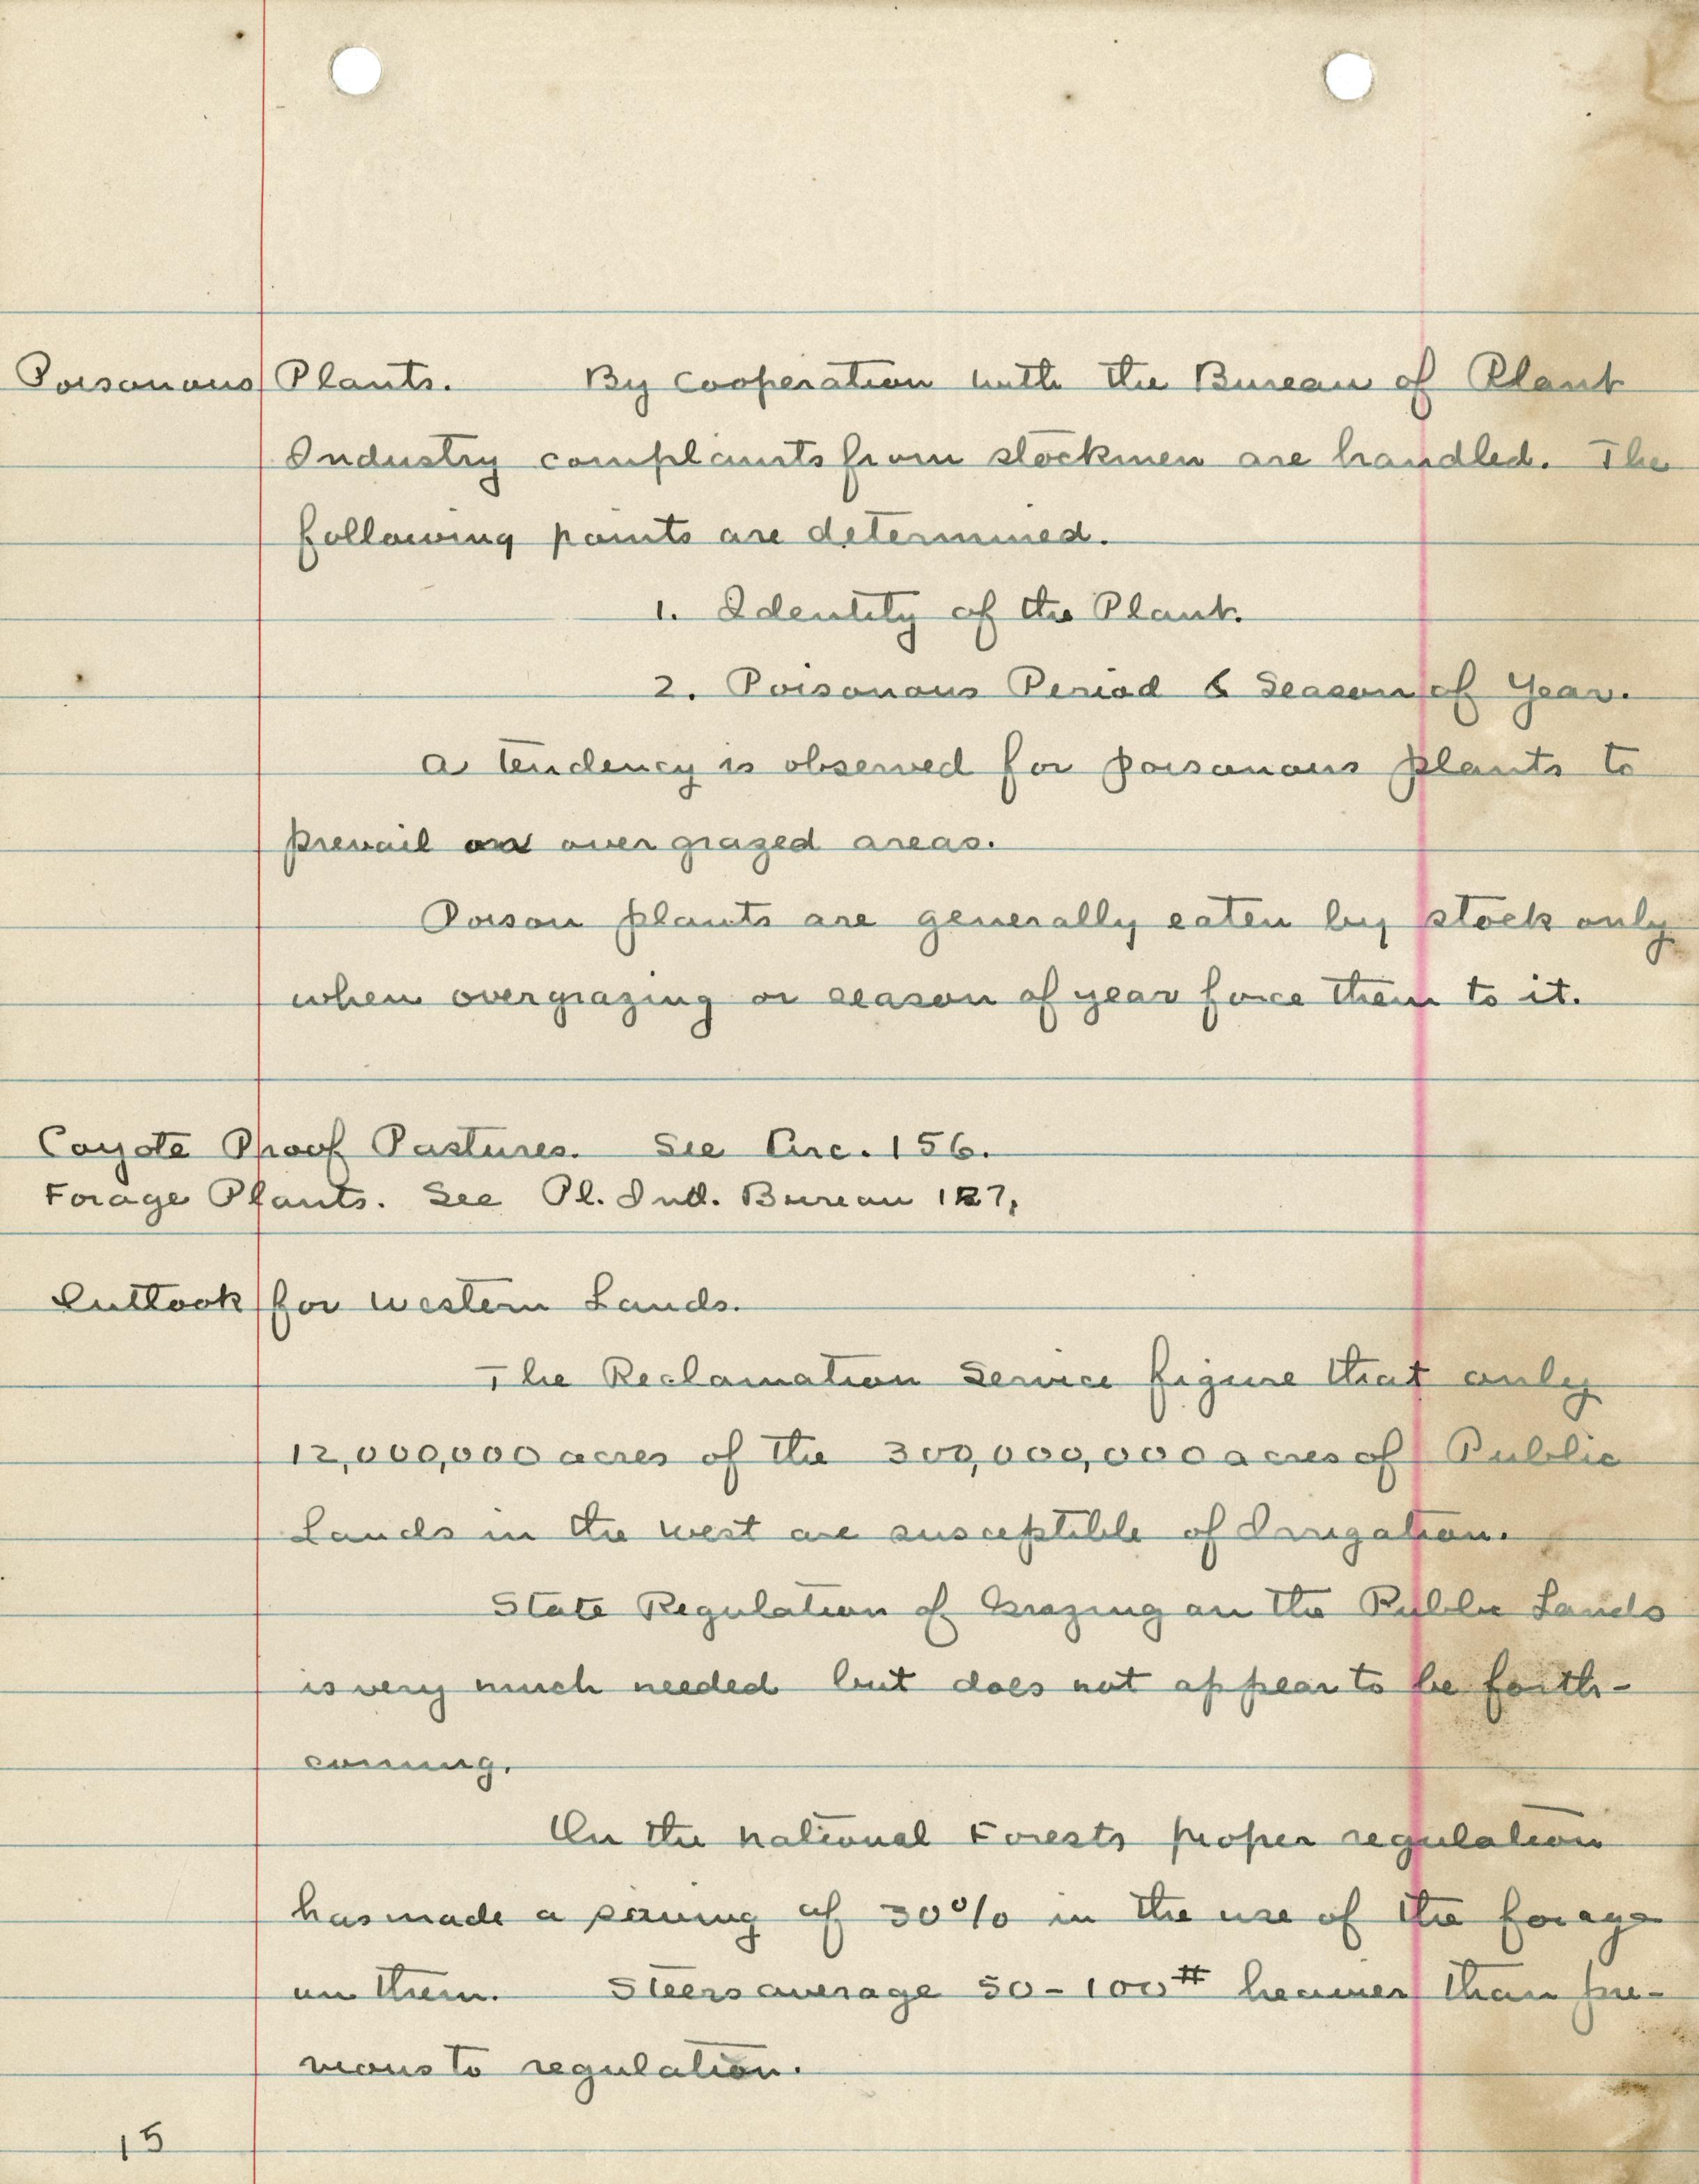 Poisonous Plants. By Cooperation with the Bureau of Plant
Industry complaints from stockmen are handled. The
following points are determined.
1. Identity of the Plant.
2. Poisonous Period & Season of Year.
A tendency is observed for poisonous plants to
prevail on over grazed areas.
Poison plants are generally eaten by stock only
when overgrazing or season of year force them to it.
Coyote Proof Pastures. See Circ. 156.
Forage Plants. See Pl. Ind. Bureau 127,
Outlook for Western Lands.
The Reclamation Service figure that only
12,000,000 acres of the 300,000,000 acres of Public
Lands in the west are susceptible of Irrigation.
State Regulation of Grazing on the Public Lands
is very much needed but does not appear to be forth-
coming.
On the National Forests proper regulation
has made a saving of 30% in the use of the forage
on them. Steers average 50-100# heavier than pre-
vious to regulation.
15